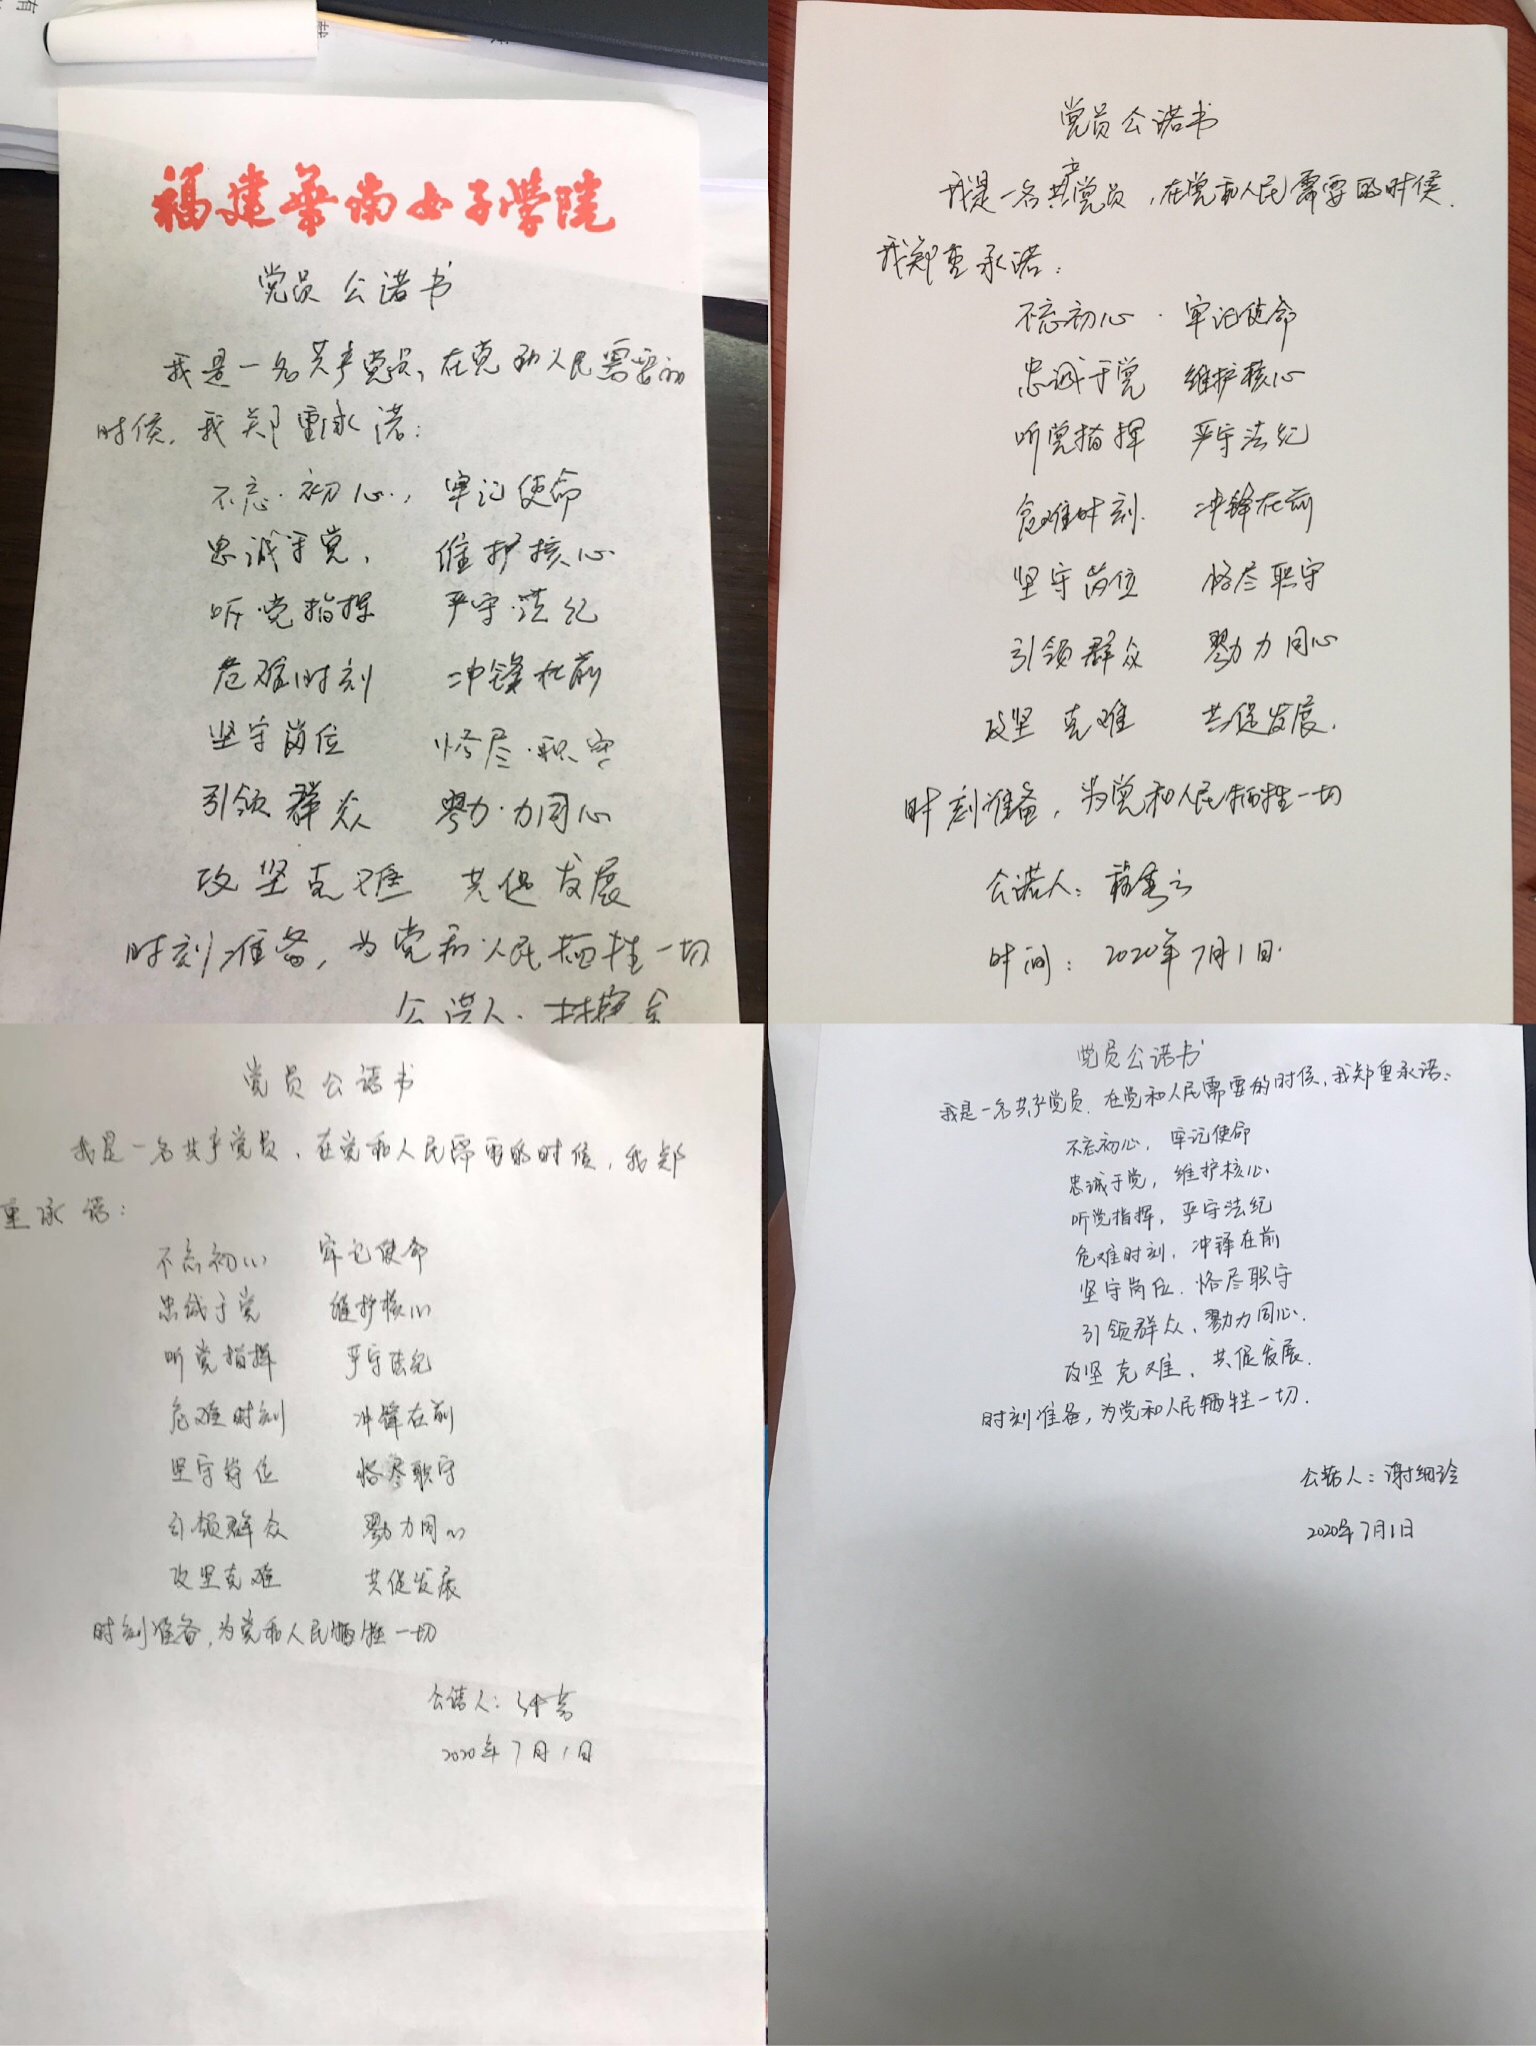 福建华南女子学院
党员公诺书
我是一名共产党员，在党和人民需要的
时候，我郑重承诺：
不忘初心，牢记使命
忠诚于党，维护核心
听党指挥 严守法纪
危难时刻 冲锋在前
坚守岗位 恪尽职守
引领群众 勠力同心
攻坚克难 共促发展
时刻准备，为党和人民牺牲一切
公诺人：
党员公诺书
我是一名共产党员，在党和人民需要的时候，
我郑重承诺：
不忘初心 牢记使命
忠诚于党 维护核心
听党指挥 严守法纪
危难时刻 冲锋在前
坚守岗位 恪尽职守
引领群众 勠力同心
攻坚克难 共促发展.
时刻准备，为党和人民牺牲一切
公诺人：
时间：2020年7月1日
党员公诺书
我是一名共产党员，在党和人民需要的时候，我郑
重承诺：
不忘初心 牢记使命
忠诚于党 维护核心
听党指挥 严守法纪
危难时刻 冲锋在前
坚守岗位 恪尽职守
引领群众 勠力同心
攻坚克难 共促发展
时刻准备，为党和人民牺牲一切
公诺人：
2020年7月1日
党员公诺书
我是一名共产党员，在党和人民需要的时候，我郑重承诺：
不忘初心，牢记使命
忠诚于党，维护核心
听党指挥，严守法纪
危难时刻，冲锋在前
坚守岗位，恪尽职守
引领群众，勠力同心.
攻坚克难，共促发展.
时刻准备，为党和人民牺牲一切.
公诺人：谢细玲
2020年7月1日